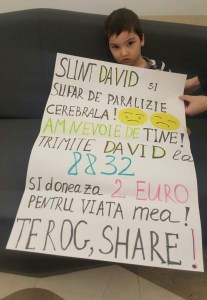 SUNT DAVID SI
SUFAR DE PARALIZIE
CEREBRALA!
AM NEVOIE DE TINE!
TRIMITE DAVID la
8832
SI doneaza 2 EURO
PENTRU VIATA mea!
TE ROG, SHARE!